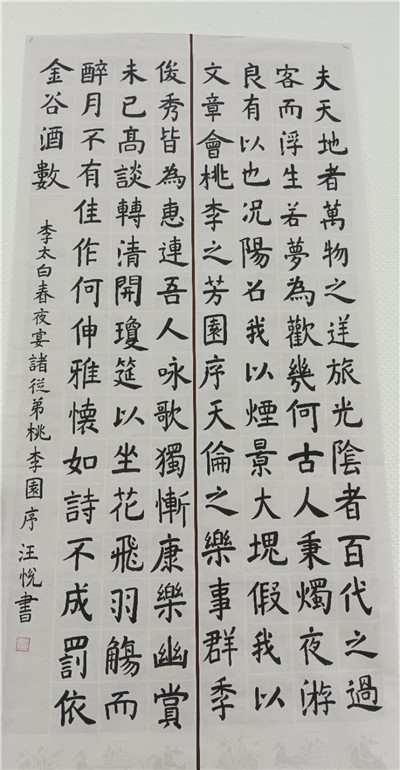 夫天地者萬物之逆旅光陰者百代之過
客而浮生若夢為歡幾何古人秉燭夜游
良有以也况陽召我以煙景大塊假我以
文章會桃李之芳園序天倫之樂事群季
俊秀皆為惠連吾人咏歌獨慚康樂幽賞
未已髙談轉清開瓊筵以坐花飛羽觴而
醉月不有佳作何伸雅懷如詩不成罰依
金谷酒數
李太白春夜宴諸從弟桃李園序 汪悅書